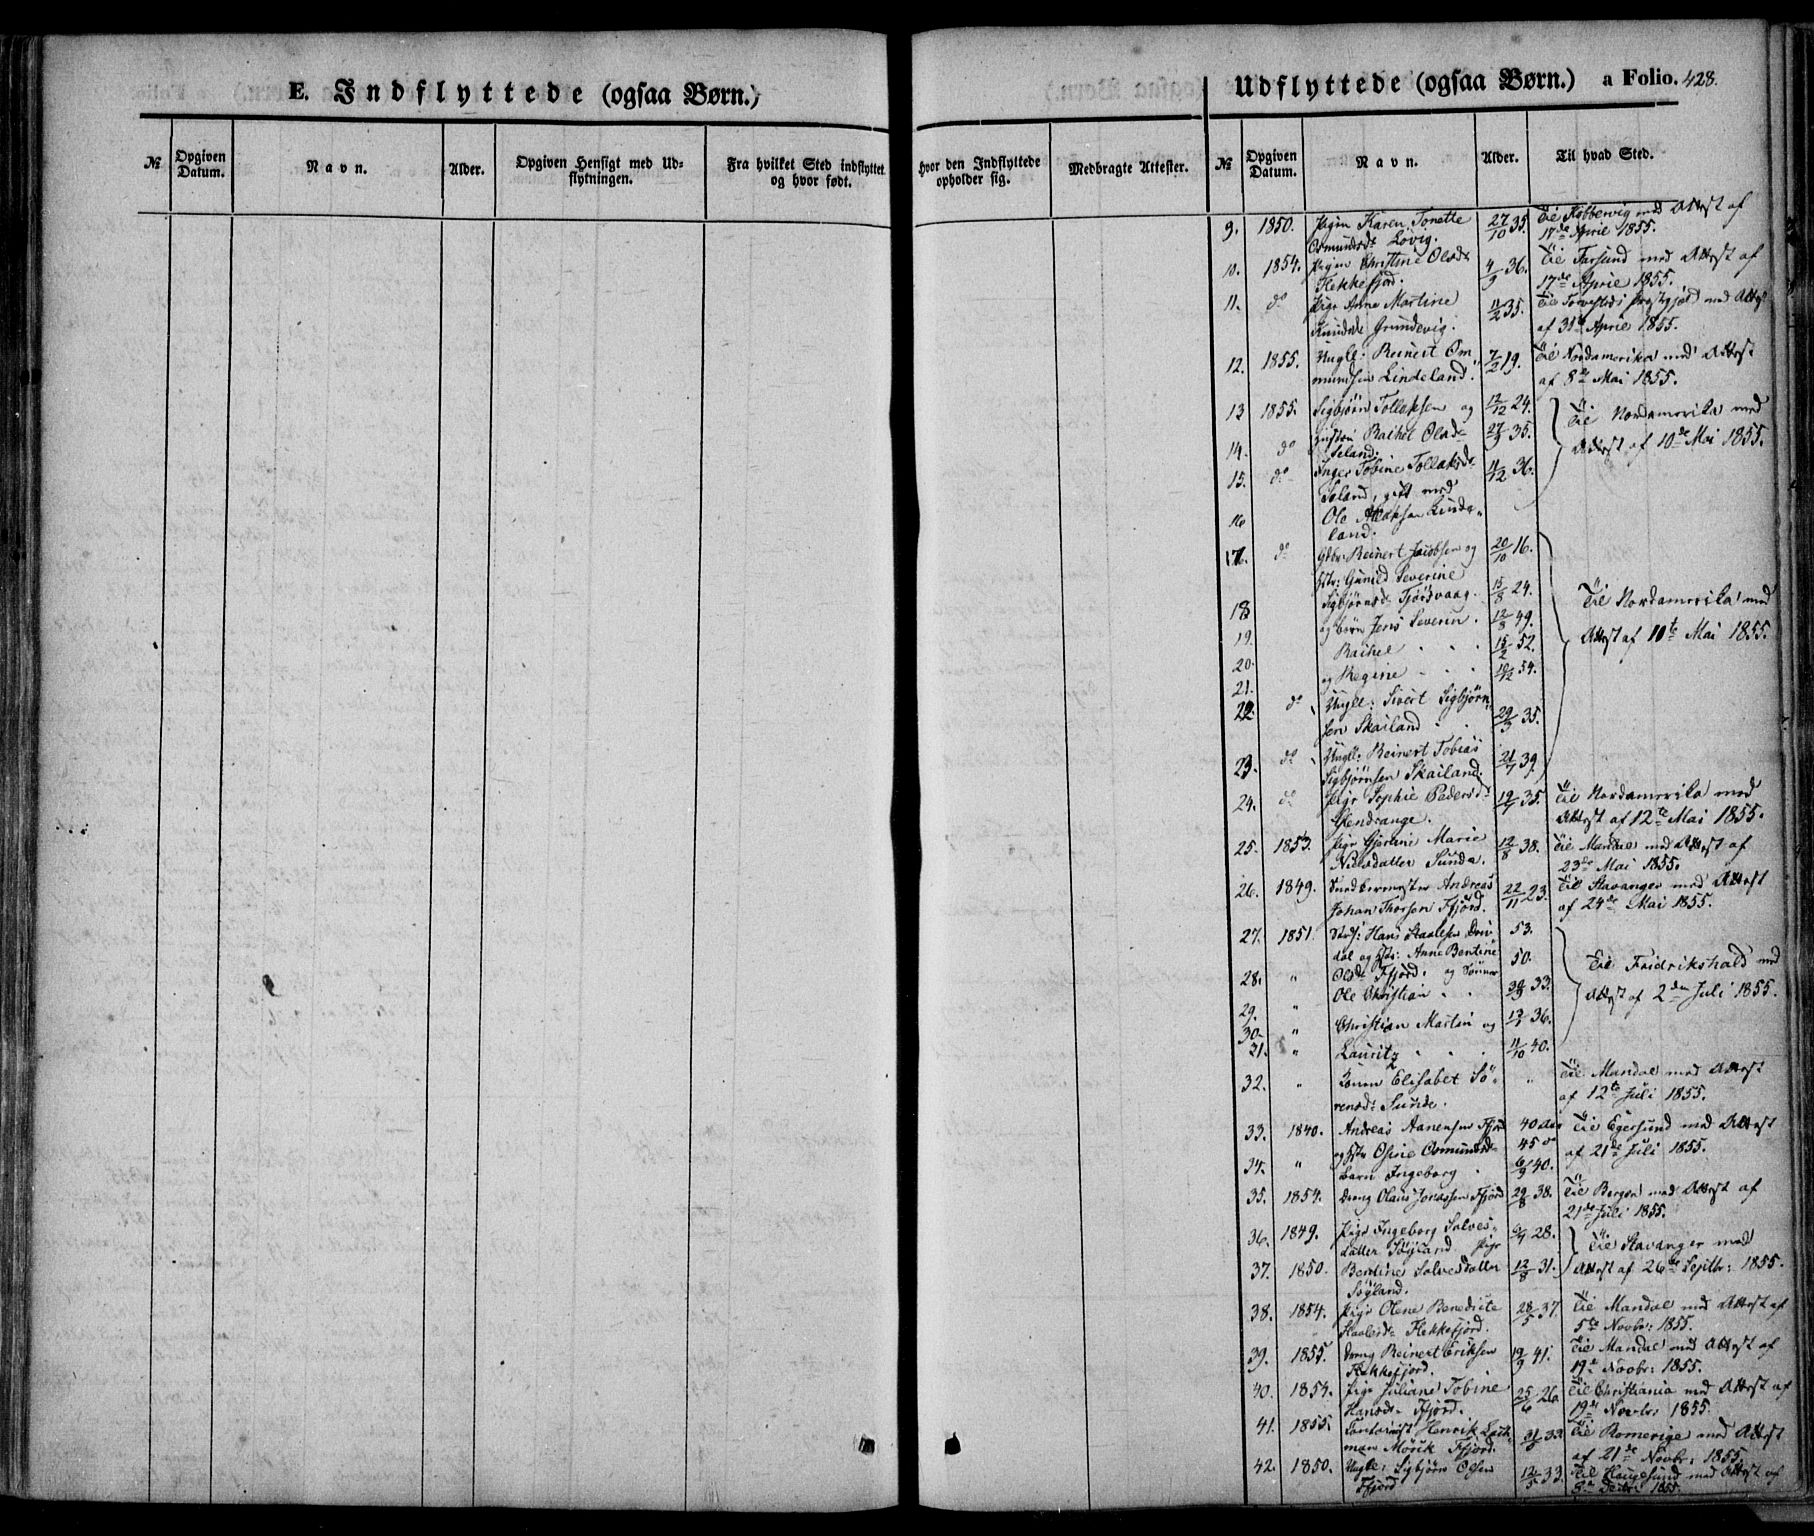 E. Indflyttede (ogsaa Børn.)
Udflyttede (ogsaa Børn.) a Folio. 428.
№ Opgiven Datum. Navn. Alder. Opgiven Hensigt med Udflytningen. Fra hvilket Sted indflyttet og hvor født. Hvor den Indflyttede opholder sig. Medbragte Attester. № Opgiven Datum. Navn. Alder. Til hvad Sted.
9. 1850. Pigen Karen Tonette 27/10 35. Til Kobbervig med Attest af
Osmundsdt Lövig. 17de April 1855.
10. 1854. Pigen Christine Olsdt 4/9 36. Til Farsund med Attest af
Flekkefjord. 17de April 1855.
11. do Pige Anne Martine 11/2 35. Til Torvestads Prgstgjæld med Attest
Knudsdt Grundevig. af 31te April 1855.
12. 1855. Ungk: Reinert Om- 7/2 19. Til Nordamerika med Attest
mundsen Lindeland. af 8de Mai 1855.
13 1855. Sigbjørn Tollaksen og 12/12 24. Til Nordamerika med
14. do Hustru Rachel Olsdt 27/9 35. Attest af 10de Mai 1855.
Seland.
15. do Inger Tobine Tollaksdt 11/12 36.
Seland, gift med
16 Ole Aslaksen Linde-
land.
17. do Gdbr: Reinert Jacobsen og 20/10 16.
Hstr: Gunild Severine
18 Sigbjørnsdt Fjordvaag. 15/8 24. Til Nordamerika med
19. og børn Jens Severin. 12/8 49. Attest af 10te Mai 1855.
20. Rachel 15/2 52.
21. og Regine 10/12 54.
22. do Ungk: Sivert Sigbjørn-
sen Skailand 29/3 35.
23. do Ungk: Reinert Tobias 21/7 39.
Sigbjörnsen Skailand.
24. do Pige Sophie Pedersdt 19/7 35. Til Nordamerika med
Stendrange. Attest af 12te Mai 1855.
25. 1853. Pige Gjertine Marie 12/8 38. Til Mandal med Attest af
Nilsdatter Sunde. 23de Mai 1855.
26. 1849. Andreas 22/11 23. Til Stavanger med Attest
Johan Thorsen Fjord. af 24de Mai 1855.
27. 1851. Hans Staalesen Drive- 53.
dal og Hstr: Anne Bentine
28. " Olsdt Fjord. og Sønner 50. Til Fridrikshald med
29. " Ole Christian 33. Attest af 2den Juli 1855.
30. " Christian Martin og 36.
31. " Lauritz 11/10 40.
32. " Konen Elisabet Sö- " Til Mandal med Attest
rensdt Sunde. af 12te Juli 1855.
33. 1840. Andreas Aanensen Fjord 40 Til Egersund med Attest
34. " og Hstr Osmundsdt 45 af 21de Juli 1855.
Barn Ingeborg 6/9 40.
35. 1854. Dreng Olaus Jonassen Fjord 29/8 38. Til Bergen med Attest af
21de Juli 1855.
36. 1849. Pige Ingeborg Salves- 28. Til Stavanger med
datter Söyland. Pige
37. 1850. Bentine Salvesdatter 12/8 31. Attest af 26de Septbr: 1855.
Söyland.
38. 1854. Pige Olene Benedicte 28/5 37. Til Mandal med Attest af
Staalesdt Flekkefjord. 5te Novbr: 1855.
39. 1855. Dreng Reinert Eriksen 19/9 41. Til Mandal med Attest af
Flekkefjord. 19de Novbr: 1855.
40. 1854. Pige Juliane Tobine 25/6 26. Til Christiania med Attest af
Hansdt Fjord. 19de Novbr: 1855.
41. 1855. Contorist Henrik Lach- 33. Til Romerige med Attest
man Mörik Fjord. af 21de Novbr: 1855.
42. 1850. Ungk: Sigbjørn Olsen 12/5 33. Til Haugesund med Attest af
Fjord 8de Decbr: 1855.